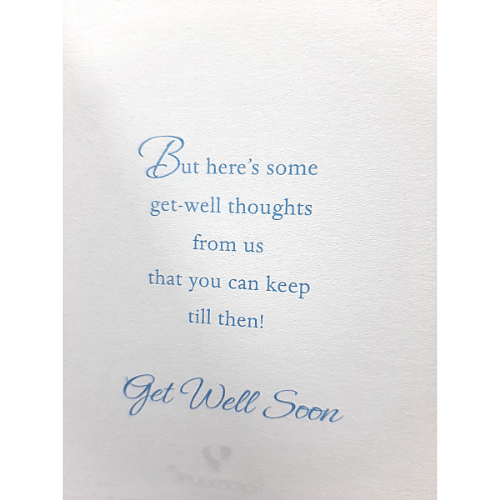 But here's some
get-well thoughts
from us
that you can keep
till then!
Get Well Soon